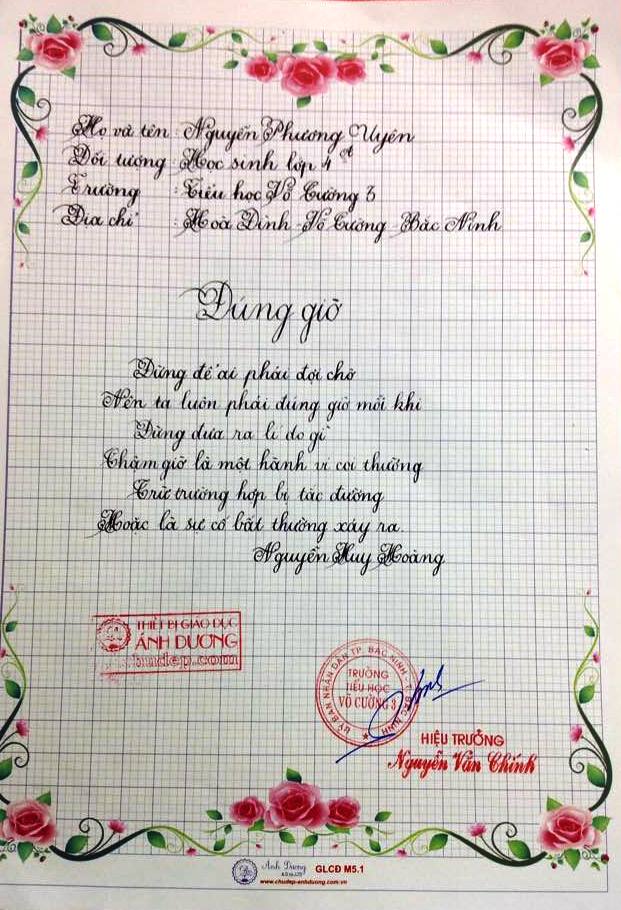 Họ và tên : Nguyễn Phương Uyên
Đối tượng : Học sinh lớp 4A
Trường : Tiểu học Võ Cường 3
Địa chỉ : Hoà Đình - Võ Cường - Bắc Ninh
Đúng giờ
Đừng để ai phải đợi chờ
Nên ta luôn phải đúng giờ mỗi khi
Đừng đưa ra lí do gì
Chậm giờ là một hành vi coi thường
Trừ trường hợp bị tắc đường
Hoặc là sự cố bất thường xảy ra.
Nguyễn Huy Hoàng
THIẾT BỊ GIÁO DỤC
ÁNH DƯƠNG
ỦY BAN NHÂN DÂN TP. BẮC NINH - T. BẮC NINH
TRƯỜNG
TIỂU HỌC
VÕ CƯỜNG 3
HIỆU TRƯỞNG
Nguyễn Văn Chính
Ánh Dương
GLCĐ M5.1
www.chudep-anhduong.com.vn